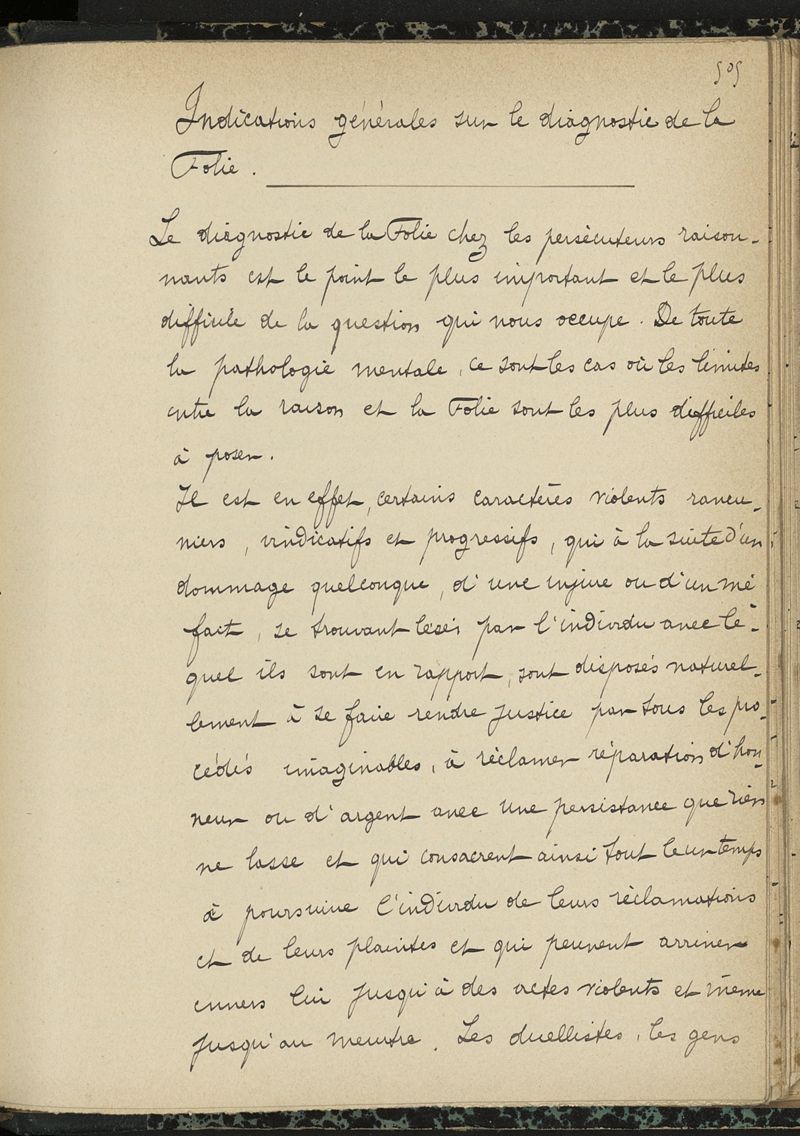 505
Indications générales sur le diagnostic de la
Folie.
Le diagnostic de la Folie chez les persécuteurs raison-
nants est le point le plus important et le plus
difficile de la question qui nous occupe. De toute
la pathologie mentale, ce sont les cas où les limites
entre la raison et la Folie sont les plus difficiles
à poser.
Il est en effet, certains caractères violents rancu-
niers, vindicatifs et progressifs, qui à la suite d'un
dommage quelconque, d'une injure ou d'un mé
fait, se trouvant lésés par l'individu avec le-
quel ils sont en rapport, sont disposés naturel-
lement à se faire rendre justice par tous les pro-
cédés imaginables, à réclamer réparation d'hon-
neur ou d'argent avec une persistance que rien
ne lasse et qui consacrent ainsi tout leur temps
à poursuivre l'individu de leurs réclamations
et de leurs plaintes et qui peuvent arriver
envers lui jusqu'à des actes violents et même
jusqu'au meurtre. Les duellistes, les gens